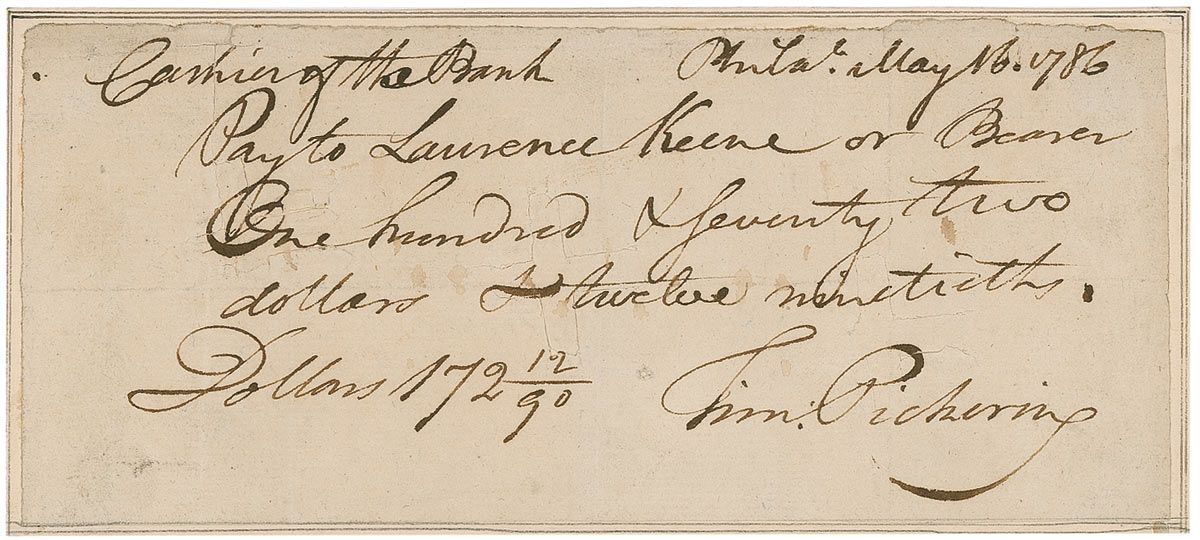 Cashier of the Bank Philaᵃ. May 16. 1786
Pay to Laurence Keene or Bearer
One hundred & seventy two
dollars & twelve ninetieths.
Dollars 172 12/90 Tim: Pickering